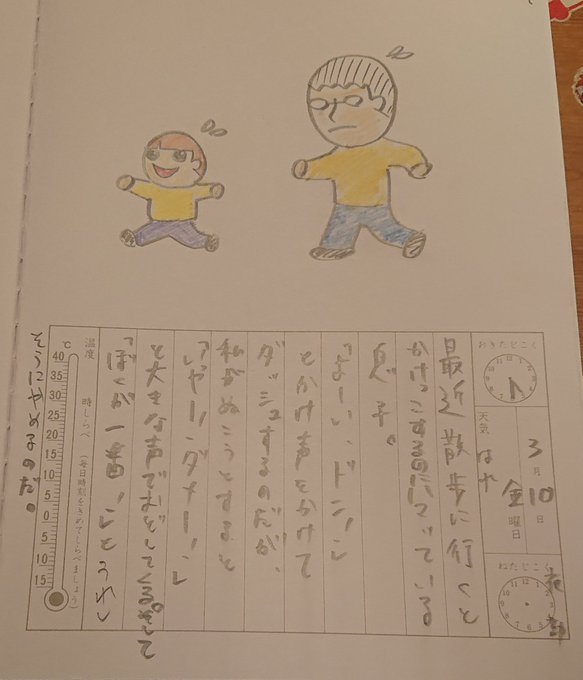 おきたじこく
天気 はれ
3月10日
金曜日
ねたじこく
最近散歩に行くと
かけっこするのにハマっている
息子。
「よーい、ドン!」
とかけ声をかけて
ダッシュするのだが、
私がぬこうとすると
「いやー!ダメー!」
と大きな声でおどしてくる。そして
「ぼくが一番!」とうれし
そうにやめるのだ。
温度 時しらべ (毎日時刻をきめてしらべましょう)
℃
40
35
30
25
20
15
10
5
0
5
10
15